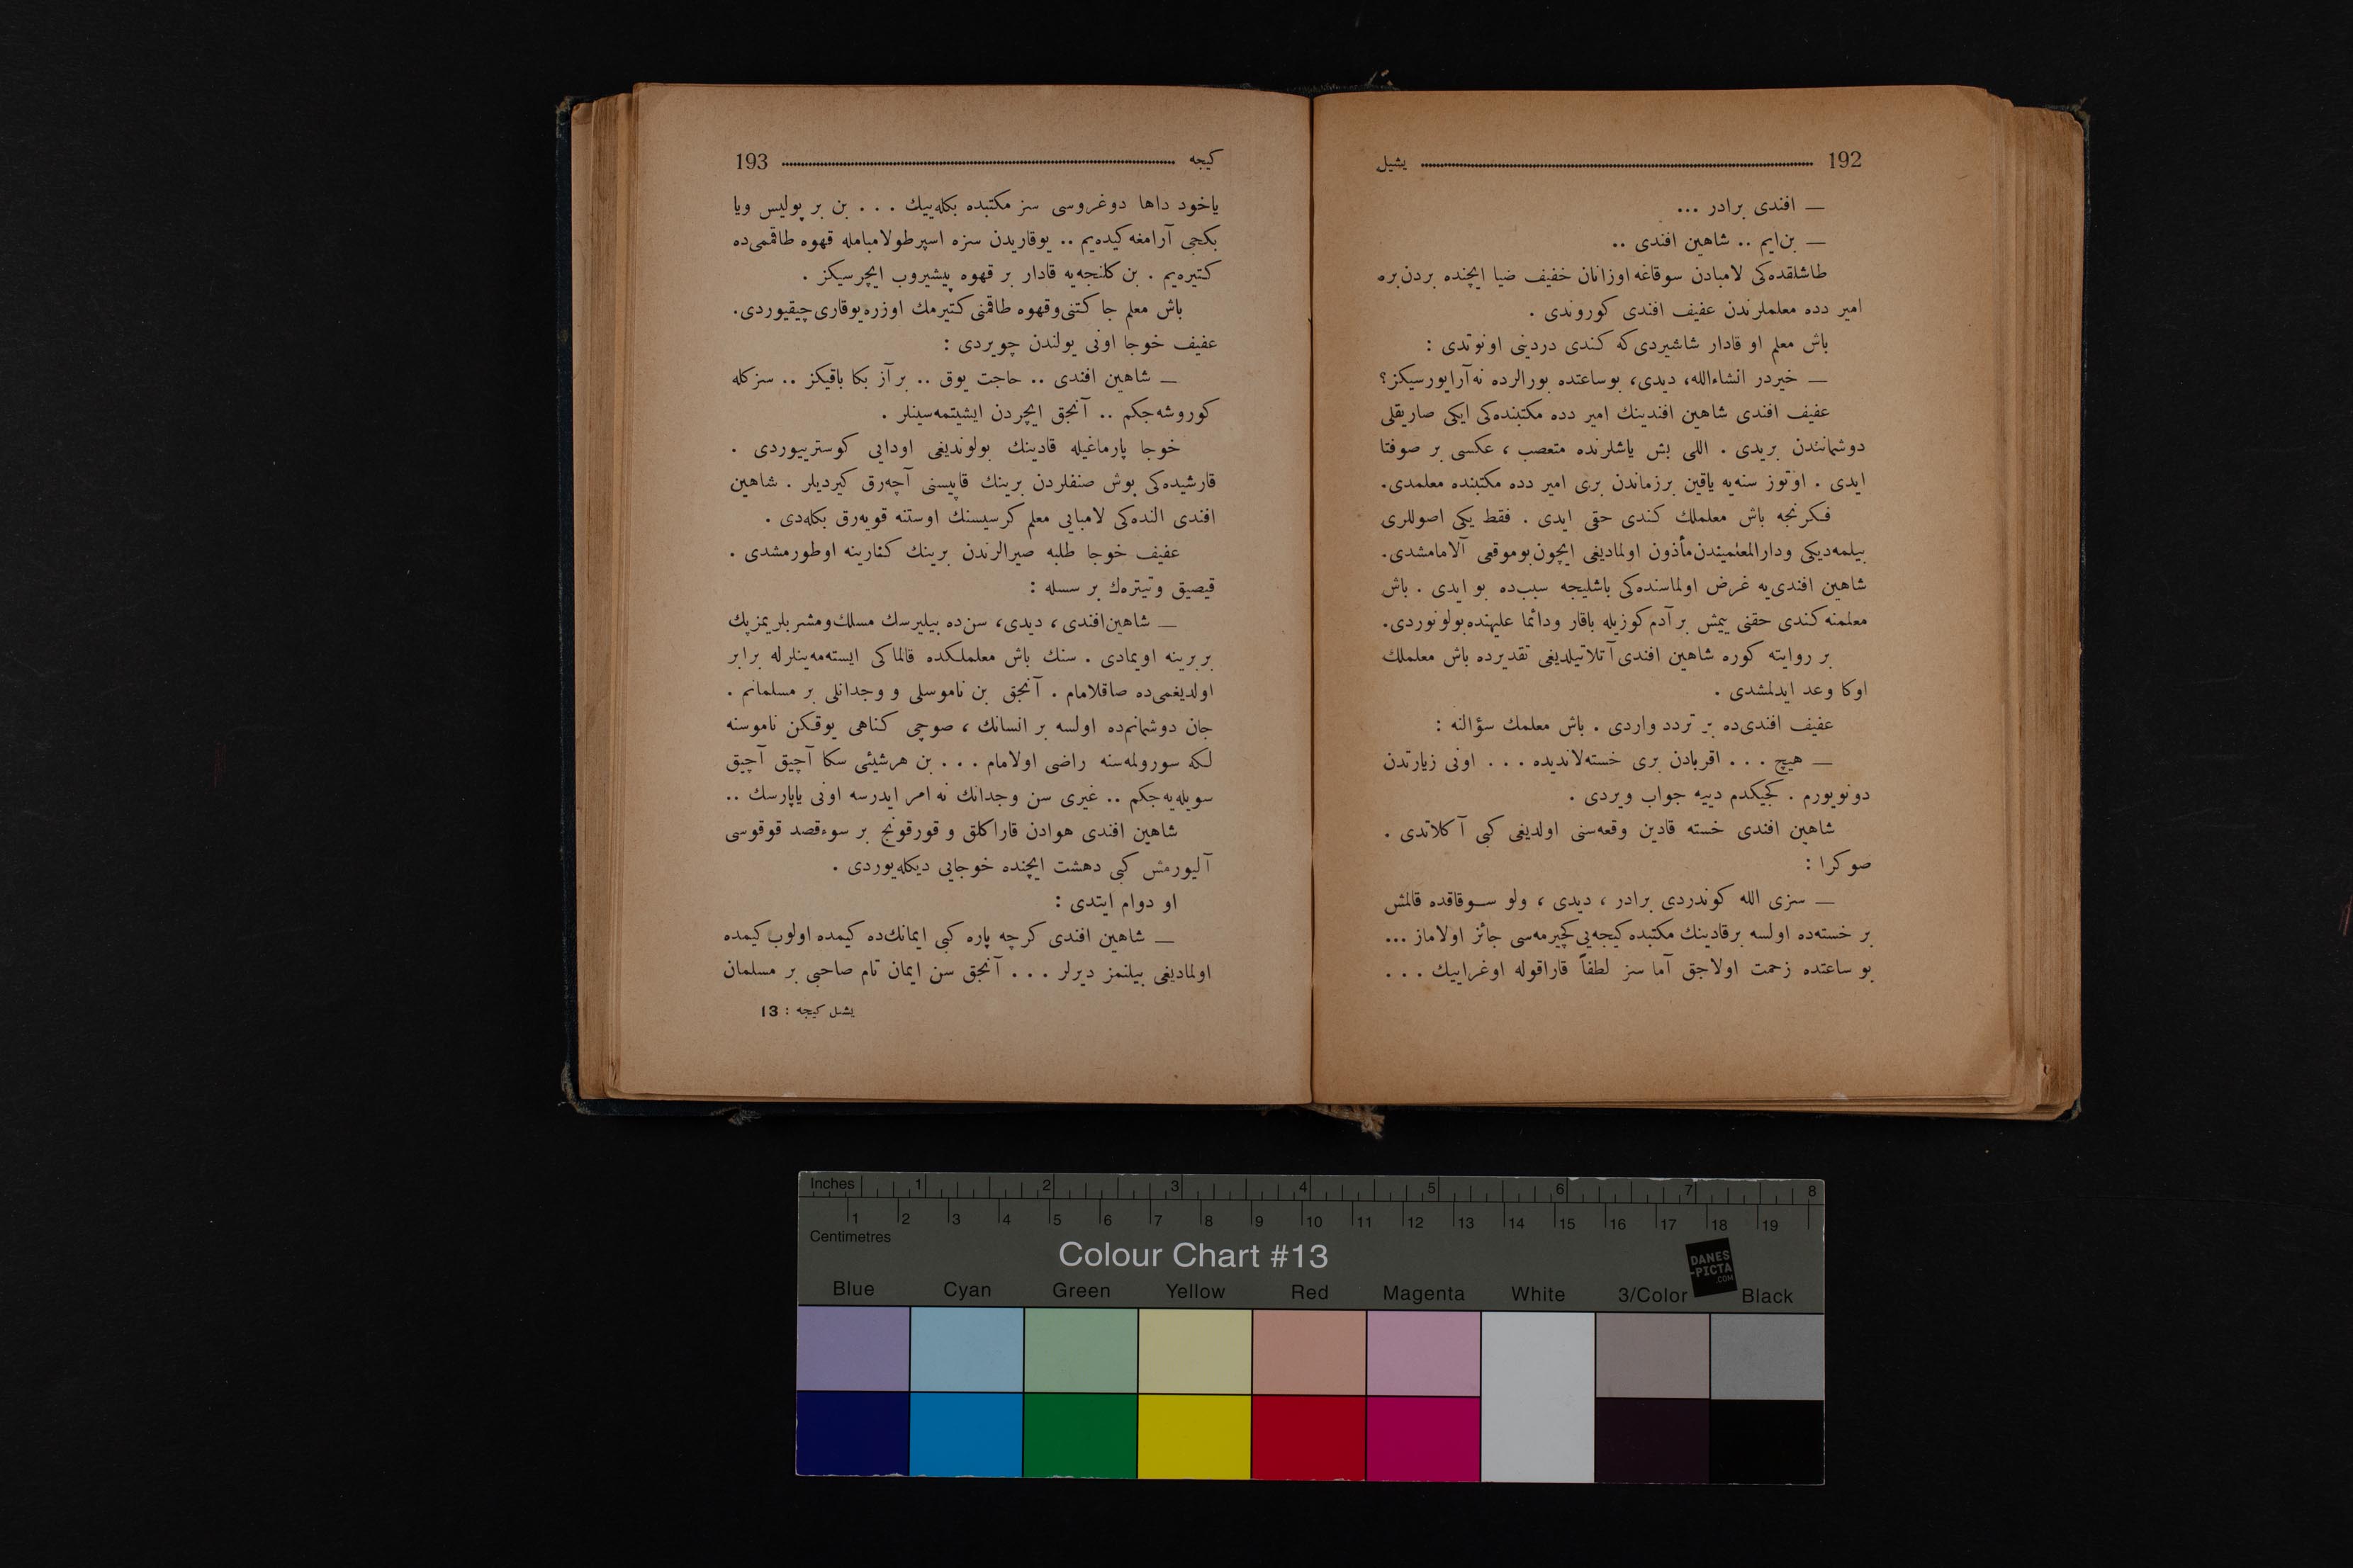 192 یشیل
— افندی برادر ...
— بن‌ایم .. شاهین افندی ..
طاشلقده‌کی لامبادن سوقاغه اوزانان خفیف ضیا ایچنده بردن‌بره
امیر دده معلملرندن عفیف افندی کوروندی .
باش معلم او قادار شاشیردی‌که کندی دردینی اونوتدی :
— خیردر انشاءالله، دیدی، بوساعتده بورالرده نه‌آرایورسیکز؟
عفیف افندی شاهین افندینك امیر دده مکتبنده‌کی ایکی صاریقلی
دوشماننندن بریدی . اللی بش یاشلرنده متعصب ، عکسی بر صوفتا
ایدی . اوتوز سنه‌یه یاقین برزماندن بری امیر دده مکتبنده معلمدی.
فکرنجه باش معلملك کندی حقی ایدی . فقط یکی اصوللری
بیلمه‌دیکی ودارالمعلمیندن‌مأذون اولمادیغی ایچون‌بوموقعی آلامامشدی.
شاهین افندی‌یه غرض اولماسنده‌کی باشلیجه سبب‌ده بو ایدی . باش
معلمنه‌کندی حقنی ییمش بر آدم‌کوزیله باقار ودائما علیهنده‌بولونوردی.
بر روایته کوره شاهین افندی آتلاتیلدیغی تقدیرده باش معلملك
اوکا وعد ایدلمشدی .
عفیف افندی‌ده بر تردد واردی . باش معلمك سؤالنه :
— هیچ . . . اقربادن بری خسته‌لاندیده . . . اونی زیارتدن
دونویورم . کجیکدم دییه جواب ویردی .
شاهین افندی خسته قادین وقعه‌سنی اولدیغی کبی آکلاتدی .
صوکرا :
— سزی الله کوندردی برادر ، دیدی ، ولو سوقاقده قالمش
بر خسته‌ده اولسه برقادینك مکتبده‌کیجه‌یی‌کچیرمه‌سی جائز اولاماز ...
بو ساعتده زحمت اولاجق آما سز لطفاً قاراقوله اوغراییك . . .
کیجه 193
یاخود داها دوغروسی سز مکتبده بکله‌ییك . . . بن بر پولیس ویا
بکجی آرامغه‌کیده‌یم .. یوقاریدن سزه اسپرطولامبامله قهوه طاقمی‌ده
کتیره‌یم . بن کلنجه‌یه قادار بر قهوه پیشیروب ایچرسیکز .
باش معلم جاکتنی‌وقهوه طاقمنی‌کتیرمك اوزره‌یوقاری‌چیقیوردی.
عفیف خوجا اونی یولندن چویردی :
— شاهین افندی .. حاجت یوق .. برآز بکا باقیکز .. سزکله
کوروشه‌جکم .. آنجق ایچردن ایشیتمه‌سینلر .
خوجا پارماغیله قادینك بولوندیغی اودایی کوستریبوردی .
قارشیده‌کی بوش صنفلردن برینك قاپیسنی آچه‌رق کیردیلر . شاهین
افندی النده‌کی لامبایی معلم کرسیسنك اوستنه قویه‌رق بکله‌دی .
عفیف خوجا طلبه صیرالرندن برینك کنارینه اوطورمشدی .
قیصیق وتیتره‌ك بر سسله :
— شاهین‌افندی ، دیدی، سن‌ده بیلیرسك مسلك‌ومشربلریمزپك
بربرینه اویمادی . سنك باش معلملکده قالماکی ایسته‌مه‌ینلرله برابر
اولدیغمی‌ده صاقلامام . آنجق بن ناموسلی و وجدانلی بر مسلمانم .
جان دوشمانم‌ده اولسه بر انسانك ، صوچی کناهی یوقکن ناموسنه
لکه سورولمه‌سنه راضی اولامام . . . بن هرشیئی سکا آچیق آچیق
سویله‌یه‌جکم .. غیری سن وجدانك نه امر ایدرسه اونی یاپارسك ..
شاهین افندی هوادن قاراکلق و قورقونج بر سوءقصد قوقوسی
آلیورمش کبی دهشت ایچنده خوجایی دیکله‌یوردی .
او دوام ایتدی :
— شاهین افندی کرچه پاره کبی ایمانك‌ده کیمده اولوب کیمده
اولمادیغی بیلنمز دیرلر . . . آنجق سن ایمان تام صاحبی بر مسلمان
یشیل کیجه : 13
Inches 1 2 3 4 5 6 7 8
1 2 3 4 5 6 7 8 9 10 11 12 13 14 15 16 17 18 19
Centimetres
Colour Chart #13
DANES
-PICTA
.COM
Blue Cyan Green Yellow Red Magenta White 3/Color Black